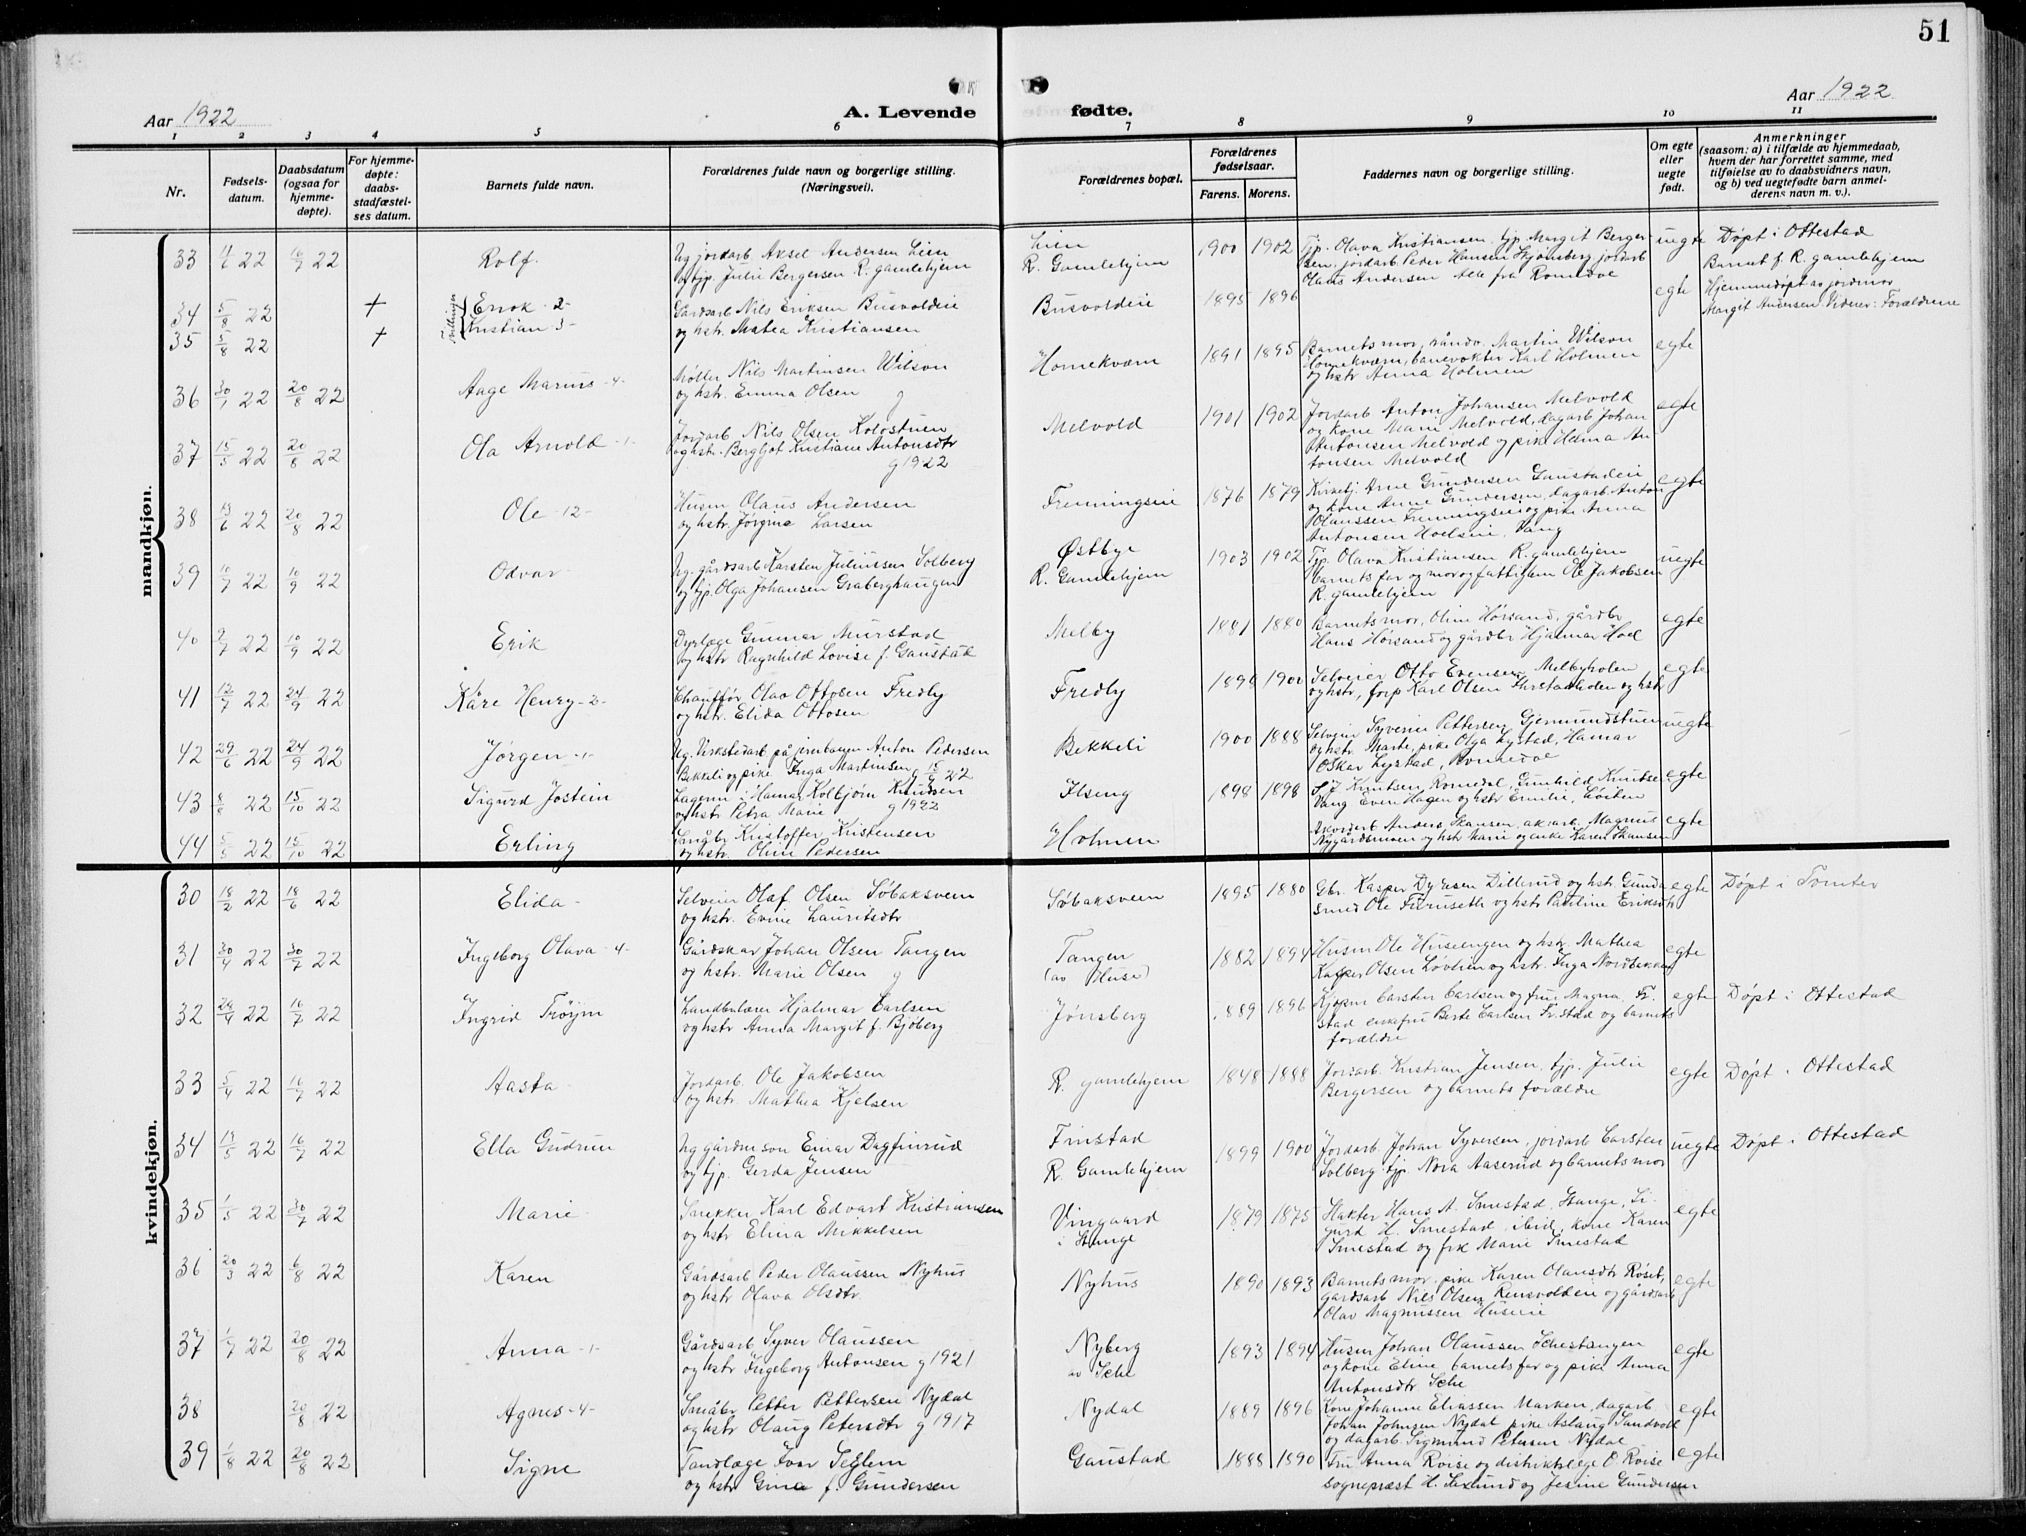 51
Aar 1922
A. Levende
fødte.
Aar 1922
1 2 3 4 5 6 7 8 9 10 11
Nr.
Fødsels-
datum.
Daabsdatum
(ogsaa for
hjemme-
døpte).
For hjemme-
døpte:
daabs-
stadfæstel-
ses datum.
Barnets fulde navn.
Forældrenes fulde navn og borgerlige stilling.
(Næringsvei).
Forældrenes bopæl.
Forældrenes
fødselsaar.
Farens. Morens.
Faddernes navn og borgerlige stilling.
Om egte
eller
uegte
født.
Anmerkninger
(saasom: a) i tilfælde av hjemmedaab,
hvem der har forrettet samme, med
tilføielse av to daabsvidners navn,
og b) ved uegtefødte barn anmel-
derens navn m. v.).
mandkjøn.
33 22 16/7 22 Rolf
Ug jordarb Aksel Andersen Lien
og tjp. Julie Bergersen R. gamlehjem
Lien
R. Gamlehjem
1900 1902
Tjp. Olava Kristiansen, tjp. Margit Berger-
sen, jordarb Peder Hansen Hjønsberg, jordarb
Olaus Andersen alle fra Romedal
uegte
Døpt i Ottestad
Barnet f. R. gamlehjem
34 5/8 22 + Tvillinger Errok -2-
35 5/8 22 + Kristian -3-
Gårdsarb Nils Eriksen Busvoldeie
og hstr. Matea Kristiansen
Busvoldeie
1895 1896
egte
Hjemmedøpt av jordmor
Margit Andersen Vidner: Forældrene
36 30/7 22 20/8 22 Aage Marius -4-
Møller Nils Martinsen Wilson
og hstr. Emma Olsen g
Hornekværn
1891 1895
Barnets mor, håndv. Martin Wilson
Hornekværn, banevokter Karl Holmen
og hstr Anna Holmen
egte
37 15/5 22 20/8 22 Ola Arnold -1-
Jordarb Nils Olsen Kolostuen
og hstr. Bergljot Kristiane Antonsdtr
g 1922
Melvold
1901 1902
Jordarb Anton Johansen Melvold
og kone Marie Melvold, dagarb Johan
Antonsen Melvold og pike Helma An
tonsen Melvold
egte
38 13/6 22 20/8 22 Ole -12-
Husm Olaus Andersen
og hstr. Jørgine Larsen
Frenningseie
1876 1879
Kirketj. Arne Gundersen Gaustadeie
og kone Anne Gundersen, dagarb. Anton
Olaussen Frenningseie og pike Anna
Antonsen Hoelseie, Vang
egte
39 10/7 22 10/9 22 Odvar
Ug. gårdsarb Karsten Juliussen Solberg
og tjp. Olga Johansen Graberghaugen
Østbye
R. Gamlehjem
1903 1902
Tjp. Olava Kristiansen R. gamlehjem
barnets far og mor og fattiglem Ole Jakobsen
R. gamlehjem
uegte
40 9/7 22 10/9 22 Erik
Dyrlæge Gunnar Murstad
og hstr Ragnhild Lovise f. Gaustad
Melby
1881 1880
Barnets mor, Oline Hørsand, gårdbr
Hans Hørsand og gårdbr Hjalmar Hoel
egte
41 12/7 22 24/9 22 Kåre Henry -2-
Chauffør Olav Ottosen Fredly
og hstr. Elida Ottosen
Fredly
1898 1900
Selveier Otto Evensen Melbyholen
og hstr, forp Karl Olsen og hstr
egte
42 29/6 22 24/9 22 Jørgen -1-
Ug. Verkstedarb på jernbanen Anton Pedersen
Bekkeli og pike Inga Martinsen g 15/9 22
Bekkeli
1900 1888
Selveier Syverin Pettersen Gjermundstuen
og hstr Marte, pike Olga Lystad, Hamar
Oskar Lystad, Romedal
uegte
43 8/8 22 15/10 22 Sigurd Jostein
Lagerm i Hamar Kolbjørn Knudsen
og hstr Petra Marie g 1922
Ilseng
1898 1898
S. J Knutsen Romedal, Gunhild Knutsen
Vang Even Hagen og hstr Emilie, Løiten
egte
44 5/5 22 15/10 22 Erling
Småbr Kristoffer Kristensen
og hstr. Oline Pedersen
Holmen
Akordarb Anders Skansen, akarb. Magnus
Nygårdsmoen og hstr Marie og enke Karen Skansen
egte
kvindekjøn.
30 18/2 22 18/6 22 Elida
Selveier Olaf Olsen Søbaksveen
og hstr. Evine Lauritsdtr
Søbaksveen
1895 1880
Gbr. Kasper Dyresen Dillerud og hstr Gunda
Smed Ole Furuseth og hstr Pauline Eriksdtr
egte
Døpt i Tomter
31 30/4 22 30/7 22 Ingeborg Olava -4-
Gårdskar Johan Olsen Tangen
og hstr. Marie Olsen g
Tangen
(av Huse)
1882 1894
Husm Ole Huseengen og hstr. Mathea
Kasper Olsen Løvlien og hstr. Inga Nordbakken
egte
32 24/4 22 16/7 22 Ingrid Trøym
Landbrlærer Hjalmar Carlsen
og hstr Anna Margit f. Bjøberg
Jønsberg
1889 1896
Kjøpm Carsten Carlsen og frue Magna, Fr.
stad enkefru Berte Carlsen Fr.stad og barnets
forældre
egte
Døpt i Ottestad
33 5/4 22 16/7 22 Aasta
Jordarb. Ole Jakobsen
og hstr. Mathea Kjelsen
R. gamlehjem
1848 1888
Jordarb Kristian Jensen, tjp. Julie
Bergersen og barnets forældre
egte
Døpt i Ottestad
34 13/5 22 16/7 22 Ella Gudrun
Ug gårdm søn Einar Dagfinrud
og tjp. Gerda Jensen
Finstad
R. Gamlehjem
1899 1900
Jordarb Johan Syversen, jordarb Carsten
Solberg tjp. Nora Aaserud og barnets mor
uegte
Døpt i Ottestad
35 1/5 22 30/7 22 Marie
Snekker Karl Edvart Kristiansen
og hstr Elina Mikkelsen
Vingaard
i Stange
1879 1875
Hans A. Smestad, Stange, Si-
gurd H. Smestad, ibid, kone Karen
Smestad og frk Marie Smestad
egte
36 20/3 22 6/8 22 Karen
Gårdsarb Peder Olaussen Nyhus
og hstr Olava Olsdtr.
Nyhus
1890 1893
Barnets mor, pike Karen Olausdtr Røset,
gårdsarb Nils Olsen Rensvoldeie og gårdsarb
Olav Magnussen Huseeie
egte
37 1/7 22 20/8 22 Anna -1-
Gårdsarb Syver Olaussen
og hstr Ingeborg Antonsen g 1921
Nyberg
av Sche
1893 1894
Husm Johan Olaussen Schestangen
og kone Eline, barnets far og pike Anna
Antonsdtr Sche
egte
38 20/8 22 Agnes -4-
Småbr Petter Pettersen Nydal
og hstr Olaug Petersdtr g 1917
Nydal
1889 1896
Kone Johanne Eliassen Marken, dagarb
Johan Johnsen Nydal pike Aslaug Sandvold
og dagarb Sigmund Petersen Nydal
egte
39 1/8 22 20/8 22 Signe
Tandlæge Ivar Seglem
og hstr Gina f. Gundersen
Gaustad
1888 1890
Fru Anna Roise og distriktslæge O Roise
sogneprest H. og Jesine Gundersen
egte